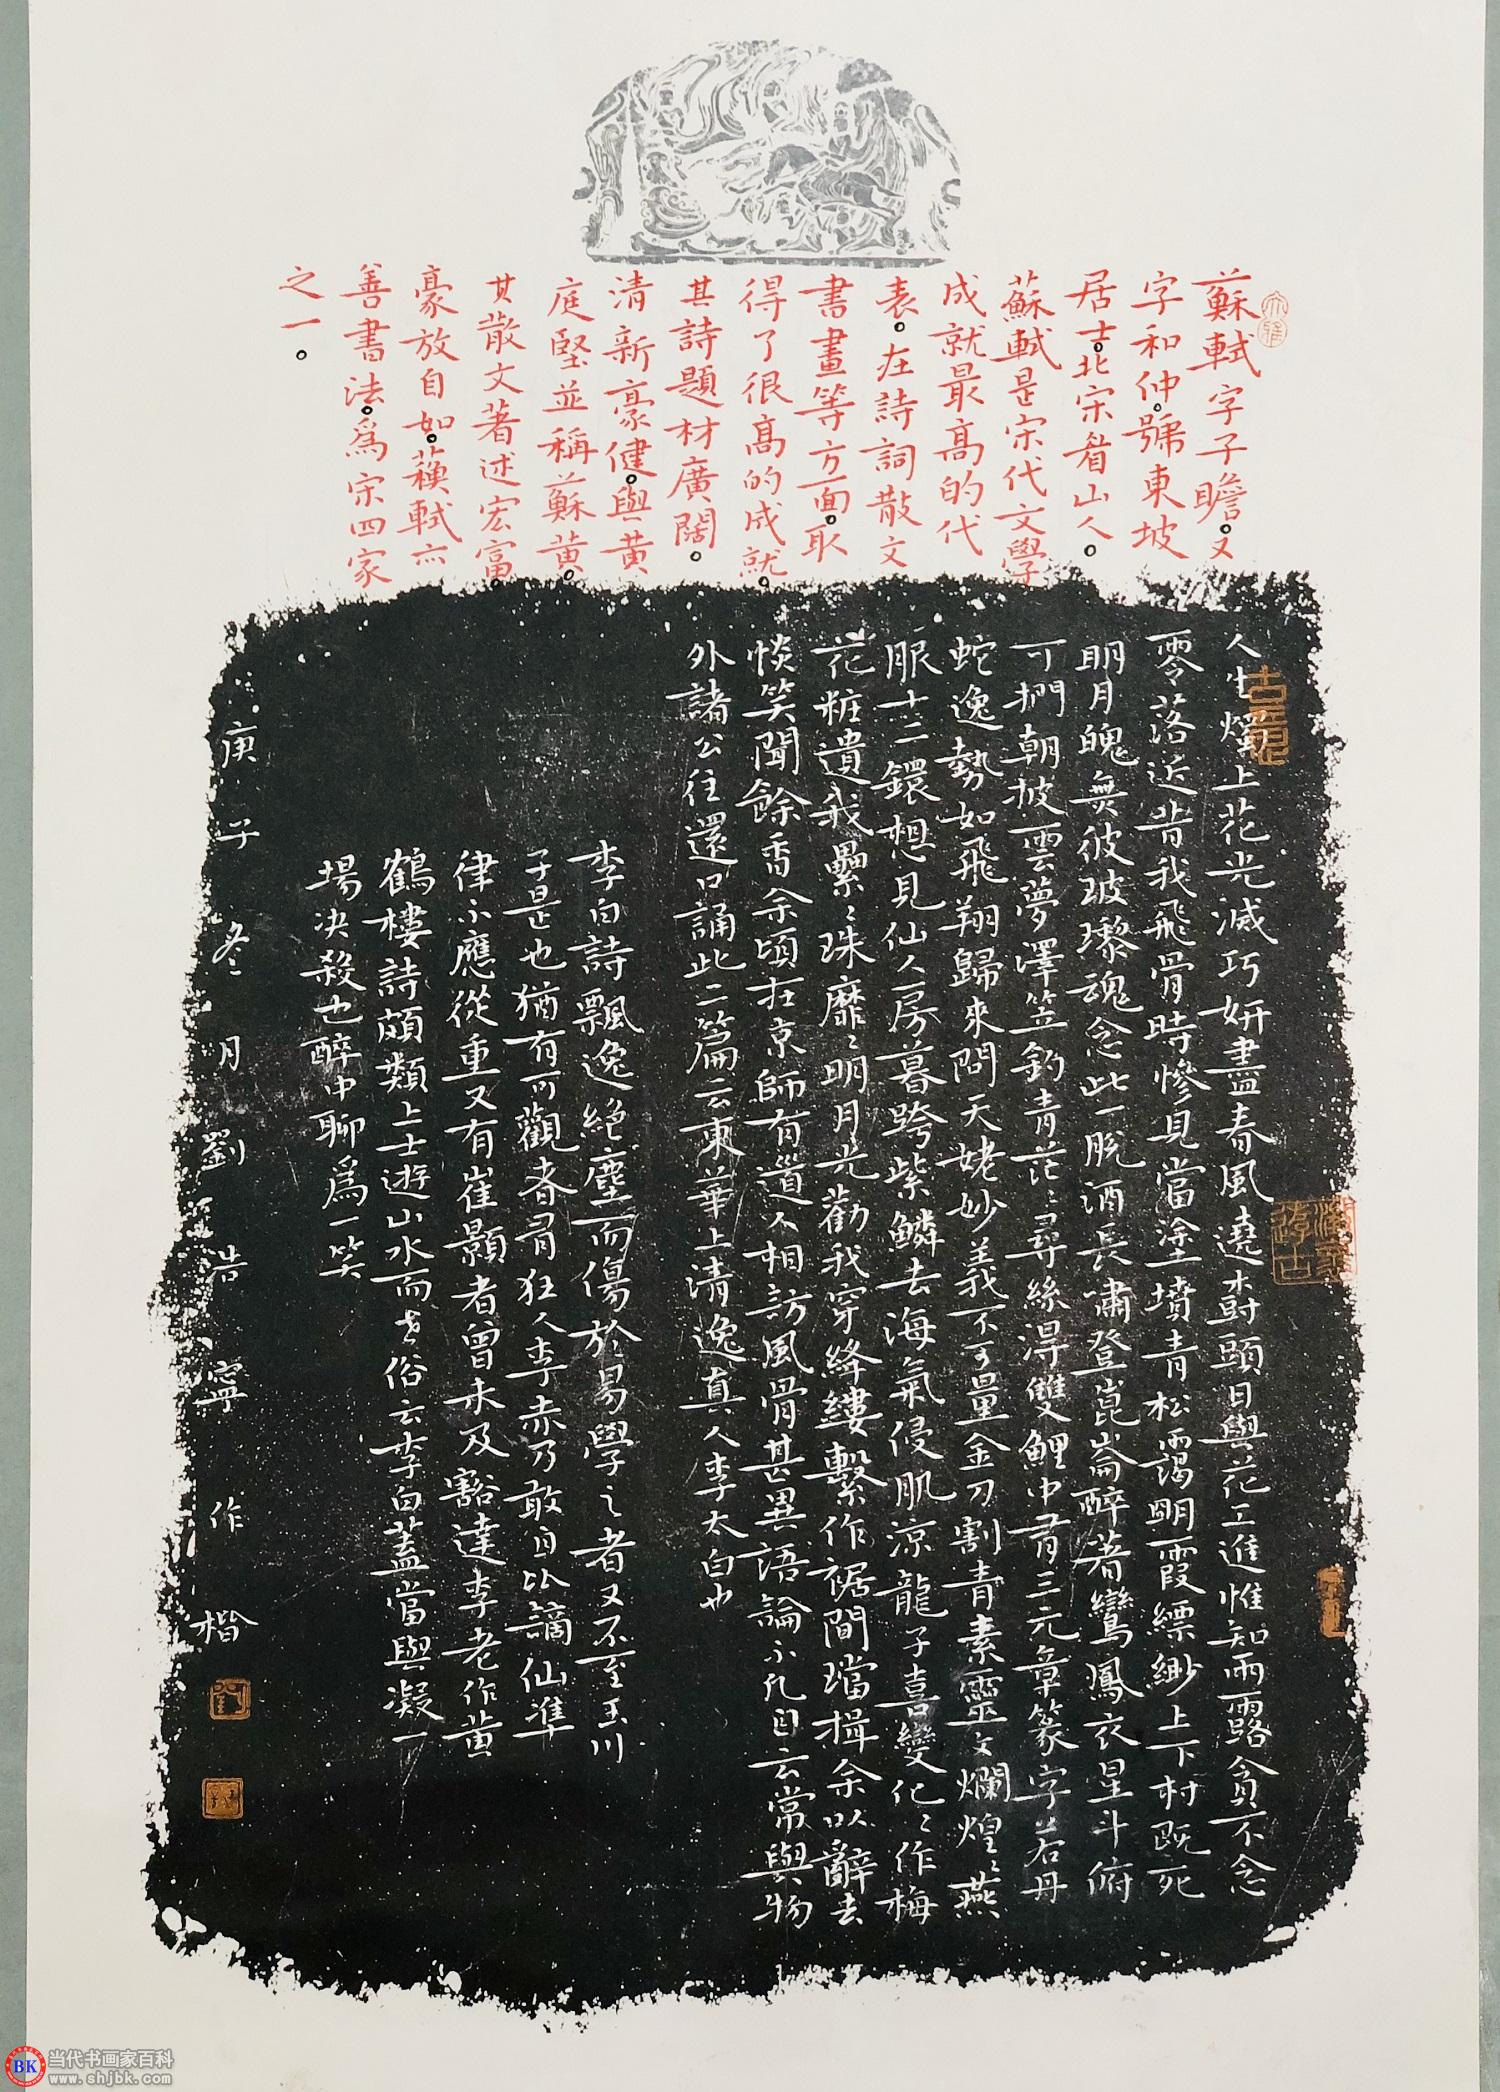 蘇軾字子瞻。又
字和仲。號東坡
居士。北宋眉山人。
蘇軾是宋代文學
成就最高的代
表。在詩詞散文
書畫等方面。取
得了很高的成就。
其詩題材廣闊。
清新豪健。與黃
庭堅並稱蘇黃。
其散文著述宏富。
豪放自如。蘇軾亦
善書法。爲宋四家
之一。
人生燭上花光滅巧妍盡春風遶樹頭日與花工進惟知雨露貪不念
零落近昔我飛骨時慘見當塗墳青松靄明霞縹緲上下村既死
明月魄無彼玻瓈魂念此一脫洒長嘯登崑崙醉著鸞鳳衣星斗俯
可捫朝披雲夢澤笠釣青茫〻尋絲得雙鯉中有三元章篆字若丹
蛇逸勢如飛翔歸來問天姥妙義不可量金刀割青素靈文爛煌〻燕
服十二鐶想見仙人房暮跨紫鱗去海氣侵肌涼龍子喜變化〻作梅
花粧遺我纍〻珠靡〻明月光勸我穿絳縷繫作裾間璫揖余以辭去
惔笑聞餘香余頃在京師有道人相訪風骨甚異語論不凡自云常與物
外諸公往還口誦此二篇云東華上清逸真人李太白也
李白詩飄逸絕塵而傷於易學之者又不至玉川
子是也猶有可觀者有狂人李赤乃敢自比謫仙準
律不應從重又有崔顥者曾未及豁達李老作黃
鶴樓詩頗類上士遊山水而世俗云李白蓋當與凝一
場決殺也醉中聊爲一笑
庚子冬月劉浩寧作楷
當代书画家百科
www.shjbk.com
BK